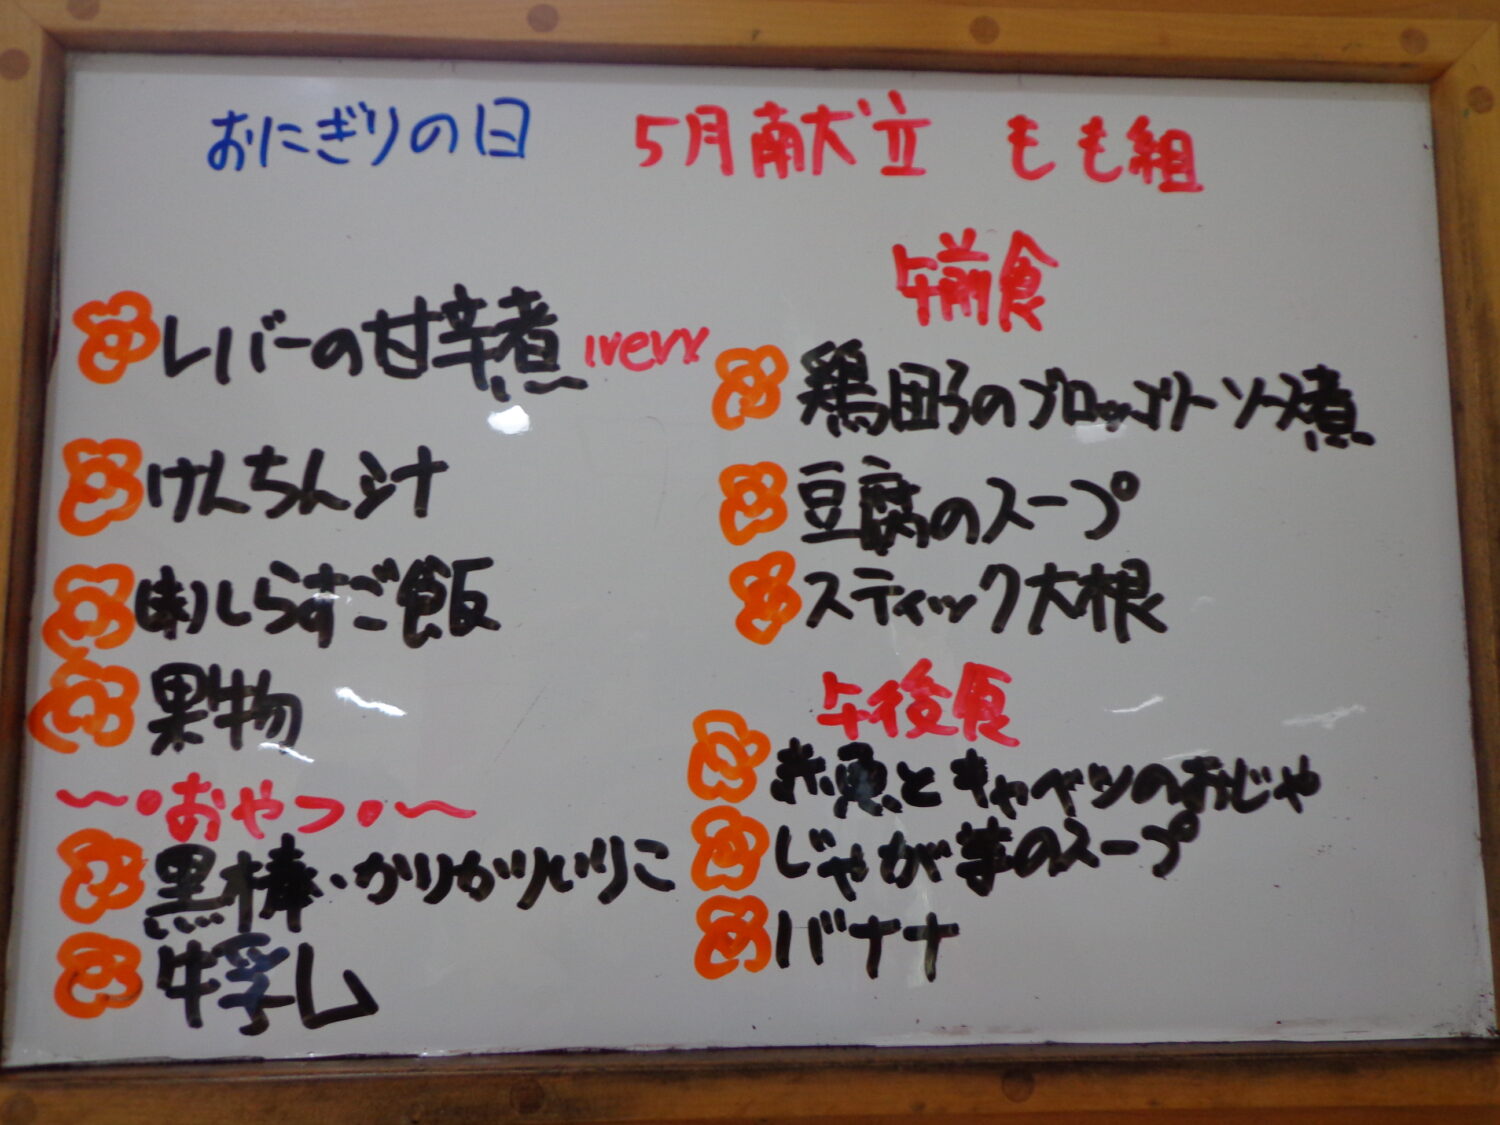 おにぎりの日
レバーの甘辛煮
けんちん汁
しらすご飯
果物
〜・おやつ・〜
黒棒・かりかりいりこ
牛乳
5月献立 もも組
午前食
鶏団子のブロッコリーソース煮
豆腐のスープ
スティック大根
午後食
赤魚とキャベツのおじや
じゃが芋のスープ
バナナ